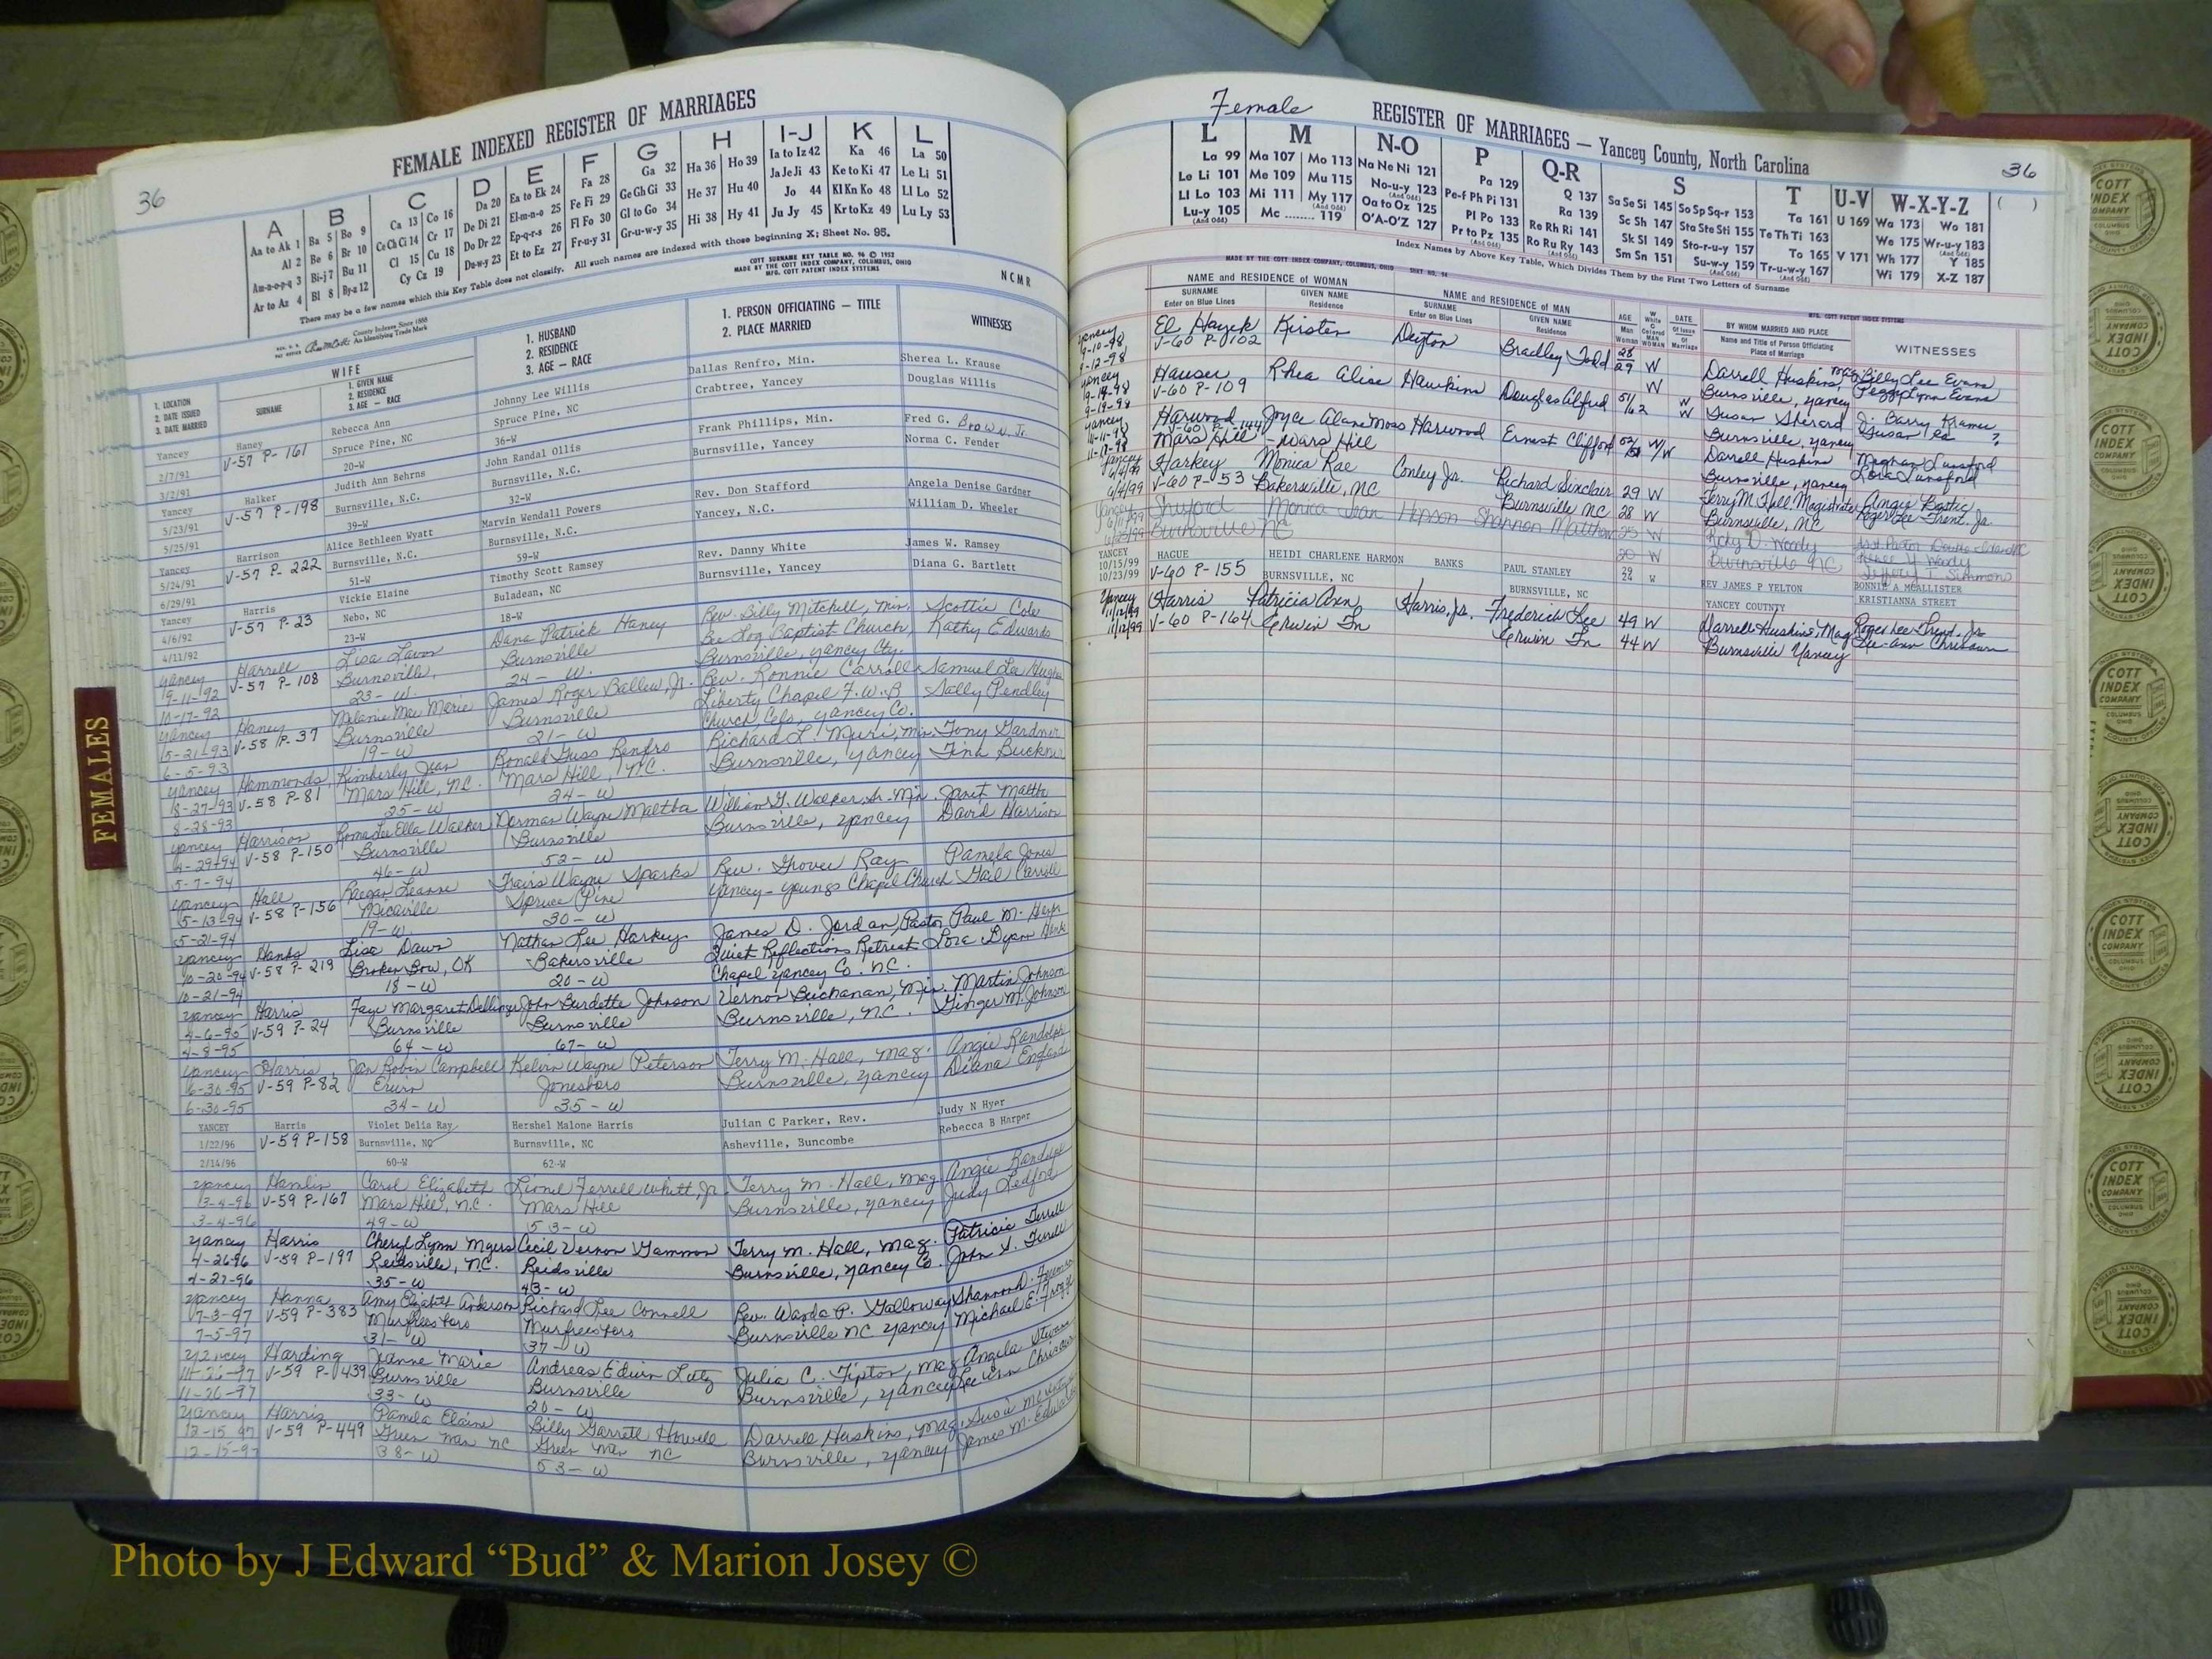 36
FEMALE INDEXED REGISTER OF MARRIAGES
A B C D E F G H I-J K L
Aa to Ak 1 Ba 5 Bo 9 Ca 13 Co 16 Da 20 Ea to Ek 24 Fa 28 Ga 32 Ha 36 Ho 39 Ia to Iz 42 Ka 46 La 50
Al 2 Be 6 Br 10 Ce Ch Ci 14 Cr 17 De Di 21 El-m-n-o 25 Fe Fi 29 Ge Gh Gi 33 He 37 Hu 40 Ja Je Ji 43 Ke to Ki 47 Le Li 51
Am-n-o-p-q 3 Bi-j 7 Bu 11 Cl 15 Cu 18 Do Dr 22 Ep-q-r-s 26 Fl Fo 30 Gl to Go 34 Hi 38 Hy 41 Jo 44 Kl Kn Ko 48 Ll Lo 52
Ar to Az 4 Bl 8 By-z 12 Cy Cz 19 Du-w-y 23 Et to Ez 27 Fr-u-y 31 Gr-u-w-y 35 Ju Jy 45 Kr to Kz 49 Lu Ly 53
There may be a few names which this Key Table does not classify. All such names are indexed with those beginning X; Sheet No. 95.
County Indexes Since 1888
An Identifying Trade Mark
COTT SURNAME KEY TABLE NO. 96 © 1952
MADE BY THE COTT INDEX COMPANY, COLUMBUS, OHIO
MFG. COTT PATENT INDEX SYSTEMS
NCMR
1. LOCATION
2. DATE ISSUED
3. DATE MARRIED
WIFE
SURNAME
1. GIVEN NAME
2. RESIDENCE
3. AGE — RACE
1. HUSBAND
2. RESIDENCE
3. AGE — RACE
1. PERSON OFFICIATING — TITLE
2. PLACE MARRIED
WITNESSES
Yancey Haney Rebecca Ann Johnny Lee Willis Dallas Renfro, Min. Sherea L. Krause
2/7/91 V-57 P-161 Spruce Pine, NC Spruce Pine, NC Crabtree, Yancey Douglas Willis
3/2/91 20-W 36-W
Yancey Halker Judith Ann Behrns John Randal Ollis Frank Phillips, Min. Fred G. Brown, Jr.
5/23/91 V-57 P-198 Burnsville, N.C. Burnsville, N.C. Burnsville, Yancey Norma C. Fender
5/25/91 39-W 32-W
Yancey Harrison Alice Bethleen Wyatt Marvin Wendall Powers Rev. Don Stafford Angela Denise Gardner
5/24/91 V-57 P-222 Burnsville, N.C. Burnsville, N.C. Yancey, N.C. William D. Wheeler
6/29/91 51-W 59-W
Yancey Harris Vickie Elaine Timothy Scott Ramsey Rev. Danny White James W. Ramsey
4/6/92 V-57 P-23 Nebo, NC Buladean, NC Burnsville, Yancey Diana G. Bartlett
4/11/92 23-W 18-W
Yancey Harrell Lisa Lavon Dana Patrick Haney Rev. Billy Mitchell, Min. Scottie Cole
9-11-92 V-57 P-108 Burnsville, Burnsville Bee Log Baptist Church, Kathy Edwards
10-17-92 23-W. 24-W. Burnsville, Yancey Cty.
Yancey Haney Melanie Mae Marie James Roger Ballew, Jr. Rev. Ronnie Carroll Samuel Lee Hughes
5-21-93 V-58 P-37 Burnsville Burnsville Liberty Chapel F.W.B Sally Pendley
6-5-93 19-W 21-W Church, Celo, Yancey Co.
Yancey Hammonds, Kimberly Jean Ronald Guss Renfro Richard L. Muri, Min. Tony Gardner
8-27-93 V-58 P-81 Mars Hill, NC. Mars Hill, NC. Burnsville, Yancey Tina Buckner
8-28-93 25-W 24-W
Yancey Harrison Ella Walker Dorman Wayne Maltba William G. Walker, Sr. Min. Janet Maltba
4-29-94 V-58 P-150 Burnsville Burnsville Burnsville, Yancey David Harrison
5-7-94 46-W 52-W
Yancey Hall Raegan Leanne Travis Wayne Sparks Rev. Grover Ray Pamela Jones
5-13-94 V-58 P-156 Micaville Spruce Pine Yancey-Youngs Chapel Church Gail Carroll
5-21-94 19-W 30-W
Yancey Hanks Lisa Dawn Nathan Lee Harkey James D. Jordan, Pastor Paul M.
10-20-94 V-58 P-219 Broken Bow, OK Bakersville Quiet Reflections Retreat Lora Dyann Hanks
10-21-94 18-W 20-W Chapel Yancey Co. NC.
Yancey Harris Faye Margaret Dellinger John Burdette Johnson Vernon Buchanan, Min. Martin Johnson
4-6-95 V-59 P-24 Burnsville Burnsville Burnsville, N.C. Ginger M. Johnson
4-8-95 64-W 67-W
Yancey Harris Jan Robin Campbell Kelvin Wayne Peterson Terry M. Hall, Mag. Angie Randolph
6-30-95 V-59 P-82 Erwin Jonesboro Burnsville, Yancey Diana England
6-30-95 34-W 35-W
YANCEY Harris Violet Delia Ray Hershel Malone Harris Julian C Parker, Rev. Judy N Hyer
1/22/96 V-59 P-158 Burnsville, NC Burnsville, NC Asheville, Buncombe Rebecca B Harper
2/14/96 60-W 62-W
Yancey Hamlin Carol Elizabeth Lionel Ferrell Whitt, Jr. Terry M. Hall, Mag Angie Randolph
3-4-96 V-59 P-167 Mars Hill, N.C. Mars Hill Burnsville, Yancey Judy Ledford
3-4-96 49-W 53-W
Yancey Harris Cheryl Lynn Myers Cecil Vernon Gammon Terry M. Hall, Mag. Patricia Terrell
4-26-96 V-59 P-197 Reidsville, N.C. Reidsville Burnsville, Yancey Co. John S. Terrell
4-27-96 35-W 43-W
Yancey Hanna Amy Elizabeth Anderson Richard Lee Connell Rev. Wanda P. Galloway Shannon D.
7-3-97 V-59 P-383 Murfreesboro Murfreesboro Burnsville NC Yancey Michael E.
7-5-97 31-W 37-W
Yancey Harding Jeanne Marie Andreas Edwin Lutz Julia C. Tipton, Mag Angela
11-26-97 V-59 P-439 Burnsville Burnsville Burnsville, Yancey Lee Ann Chrisawn
11-26-97 33-W 20-W
Yancey Harris Pamela Elaine Billy Garrett Howell Darrell Huskins, Mag. Susie
12-15-97 V-59 P-449 Green Mtn NC Green Mtn NC Burnsville, Yancey James M. Edwards
12-15-97 38-W 53-W
FEMALES
Female
REGISTER OF MARRIAGES — Yancey County, North Carolina
36
L M N-O P Q-R S T U-V W-X-Y-Z ( )
La 99 Ma 107 Mo 113 Na Ne Ni 121 Pa 129 Q 137 Sa Se Si 145 So Sp Sq-r 153 Ta 161 U 169 Wa 173 Wo 181
Le Li 101 Me 109 Mu 115 No-u-y 123 Pe-f Ph Pi 131 Ra 139 Sc Sh 147 Sta Ste Sti 155 Te Th Ti 163 We 175 Wr-u-y 183
Ll Lo 103 Mi 111 My 117 Oa to Oz 125 Pl Po 133 Re Rh Ri 141 Sk Sl 149 Sto-r-u-y 157 To 165 V 171 Wh 177 Y 185
Lu-y 105 Mc ........ 119 O'A-O'Z 127 Pr to Pz 135 Ro Ru Ry 143 Sm Sn 151 Su-w-y 159 Tr-u-w-y 167 Wi 179 X-Z 187
Index Names by Above Key Table, Which Divides Them by the First Two Letters of Surname
MADE BY THE COTT INDEX COMPANY, COLUMBUS, OHIO
MFG. COTT PATENT INDEX SYSTEMS
NAME and RESIDENCE of WOMAN
SURNAME
Enter on Blue Lines
GIVEN NAME
Residence
NAME and RESIDENCE of MAN
SURNAME
Enter on Blue Lines
GIVEN NAME
Residence
AGE
Man
Woman
W
White
C
Colored
MAN
WOMAN
DATE
Of Issue
Of
Marriage
BY WHOM MARRIED AND PLACE
Name and Title of Person Officiating
Place of Marriage
WITNESSES
Yancey El Hayek Kirsten Deyton Bradley Todd 28 W Darrell Huskins, Mag Billy Lee Evans
9-10-98 V-60 P-102 29 W Burnsville, Yancey Peggy Lynn Evans
9-12-98
Yancey Hauser Rhea Alise Hawkins Douglas Alfred 51 W Susan Sherard J. Barry Kramer
9-19-98 V-60 P-109 62 W Burnsville, Yancey Susan
9-19-98
Yancey Harwood Joyce Alane Moss Harwood Ernest Clifford 52 W/W Darrell Huskins Meghan Lunsford
11-11-98 V-60 P-144 Mars Hill - Mars Hill Burnsville, Yancey Lora Lunsford
11-17-98
Yancey Harkey Monica Rae Conley Jr. Richard Sinclair 29 W Terry M. Hall Magistrate Angie
6/4/99 V-60 P-53 Bakersville, NC Burnsville NC 28 W Burnsville, NC Roger Lee Trent, Jr.
6/4/99
Yancey Shuford Monica Jean Hopson Shannon Matthew 25 W Ricky D. Woody
6/11/99 Burnsville NC 20 W Burnsville NC Renee Y. Woody
6/25/99 Jeffery T. Simmons
YANCEY HAGUE HEIDI CHARLENE HARMON BANKS PAUL STANLEY 29 REV JAMES P YELTON BONNIE A MCALLISTER
10/15/99 V-60 P-155 BURNSVILLE, NC BURNSVILLE, NC 24 W YANCEY COUNTY KRISTIANNA STREET
10/23/99
Yancey Harris Patricia Ann Harris, Jr. Frederick Lee 49 W Darrell Huskins, Mag Roger Lee Trent, Jr.
11/12/99 V-60 P-164 Erwin Tn Erwin Tn 44 W Burnsville Yancey Lee-Ann Chrisawn
11/12/99
COTT INDEX COMPANY COLUMBUS OHIO
Photo by J Edward “Bud” & Marion Josey ©